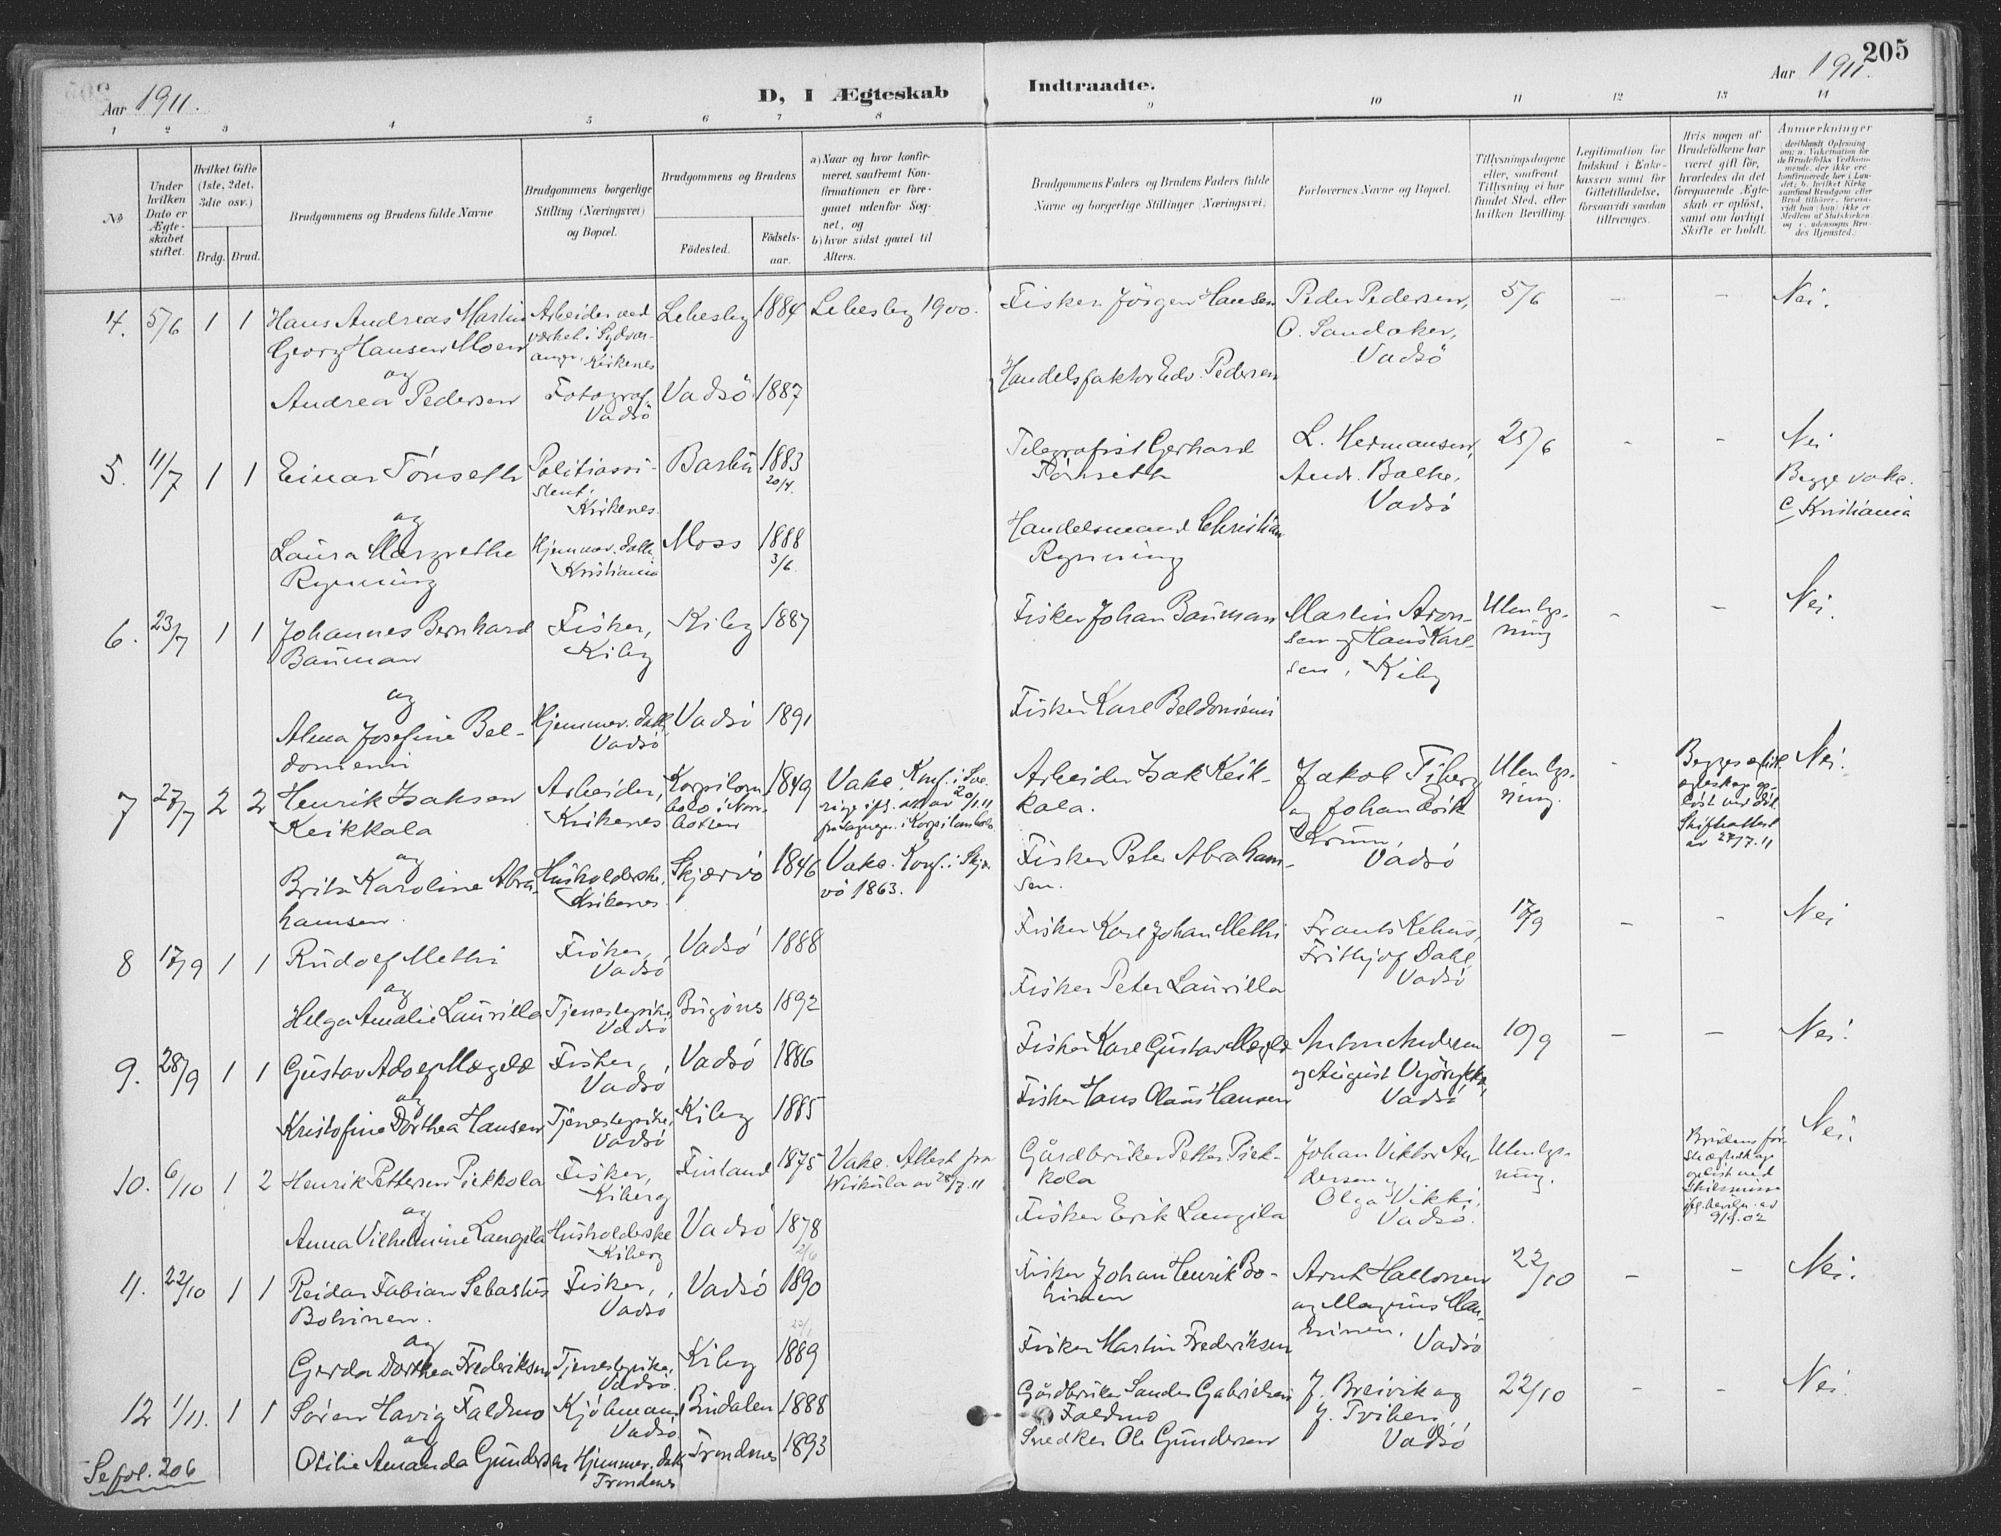 205
Aar 1911.
D, I Ægteskab Indtraadte.
Aar 1911.
1 2 3 4 5 6 7 8 9 10 11 12 13 14
No
Under hvilken Dato er Ægteskabet stiftet.
Hvilket Gifte (1ste, 2det, 3die osv.)
Brdg. Brud.
Brudgommens og Brudens fulde Navne
Brudgommens borgerlige Stilling (Næringsvei) og Bopæl.
Brudgommens og Brudens
Fødested.
Fødselsaar.
a) Naar og hvor konfirmeret, saafremt Konfirmationen er foregaaet udenfor Sognet, og
b) hvor sidst gaaet til Alters.
Brudgommens Faders og Brudens Faders fulde Navne og borgerlige Stillinger (Næringsvei).
Forlovernes Navne og Bopæl.
Tillysningsdagene eller, saafremt Tillysning ei har fundet Sted, efter hvilken Bevilling.
Legitimation for Indskud i Enkekassen samt for Giftetilladelse, forsaavidt saadan tiltrænges.
Hvis nogen af Brudefolkene har været gift før, hvorledes da det foregaaende Ægteskab er opløst, samt om lovligt Skifte er holdt.
Anmerkninger
4. 5/6 1 1 Hans Andreas Martin Georg Hansen Moen
Arbeider ved værket i Sydvaranger, Kirkenes
Lebesby 1884 Lebesby 1900.
Fisker Jørgen Hansen
Peder Pedersen, O. Sandaker, Vadsö
5/6 - - Nei.
og
Andrea Pedersen Fotograf Vadsö Vadsö 1887
Handelsfaktor Edv. Pedersen
5. 11/7 1 1 Einar Tönseth Politiassistent, Kirkenes. Bardu 1883 20/4.
Telegrafist Gerhard Tönseth
L. Hermansen, Andr. Balke, Vadsø
25/6 - - Nei
Begge vakc.
C, Kristiania
og
Laura Margrethe Rynning Hjemmev. datter, Kristiania Moss 1888 3/6.
Handelsmand Christian Rynning
6. 23/7 1 1 Johannes Bernhard Bauman Fisker, Kiby Kiby 1887
Fisker Johan Bauman
Martin Aronsen og Hans Karlsen, Kiby
Uten lysning - - Nei.
og
Alma Josefine Beldomieni Hjemmev. datt. Vadsø Vadsø 1891
Fisker Karl Beldomieni
7 27/7 2 2 Henrik Isaksen Keikkala Arbeider, Kirkenes Korpilombolo i Norrbotten 1849
Vakc. Konf. i Sverige ifl. att. av 20/1.11 fra sognepr. i Korpilombolo
Arbeider Isak Keikkala.
Jakob Tiberg og Johan Erik Krum, Vadsø
Uten lysning. -
Begges ægteskap opløst ved død. Skifteattest av 27/7.11
Nei.
og
Brita Karoline Abrahamsen. Husholderske, Kirkenes. Skjærvø 1846 Vakc. Konf. i Skjervö 1863.
Fisker Peter Abrahamsen.
8 17/9 1 1 Rudolf Methi Fisker, Vadsø Vadsø 1888
Fisker Karl Johan Methi
Frants Kehus, Frithjof Dahl, Vadsø
17/9 - - Nei
og
Helga Amalie Laurilla Tjenestepike, Vadsø Bugönes 1892
Fisker Peter Laurilla
9. 28/9 1 1 Gustav Adolf Mægelæ Fisker, Vadsø Vadsø 1886
Fisker Karl Gustav Mægelæ
Anton Andersen og August Vyörykkä, Vadsø
10/9 - - Nei.
og
Kristofine Dorthea Hansen Tjenestepike, Vadsø Kiby 1885
Fisker Hans Olaus Hansen
10. 6/10 1 2 Henrik Pettersen Piekkola Fisker, Kiberg Finland 1875
Vakc. Attest fra av 28/7.11
Gårdbruker Petter Piekkola
Johan Viktor Andersen og Olga Vikki, Vadsø.
Uten lysning.
Brudens første ægteskap opløst ved Skilsmisse
Nei.
og
Anna Vilhelmine Langila Husholderske Kiberg Vadsø 1878 2/6
Fisker Erik Langila
11. 22/10 1 1 Reidar Fabian Sebastus Bohinen. Fisker, Vadsø Vadsø 1890
Fisker Johan Henrik Bohinen
Arnt Hallonen og Magnus Manninen, Vadsø
22/10 - - Nei.
og
Gerda Dorthea Frederiksen Tjenestepike, Vadsø. Kiby 1889
Fisker Martin Frederiksen
12 1/11. 1 1 Sören Havig Faldmo Kjöbmand Vadsø Bindalen 1888
Gårdbruker Sander Gabrielsen Faldmo
J. Breivik og , Vadsø
22/10 - - Nei.
og
Otilie Amanda Gundersen Hjemmev. datt. Trondenes Trondenes 1893
Snedker Ole Gundersen
Se fol. 206